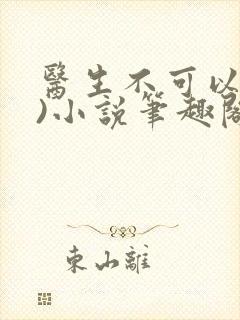 醫生不可以
)小說筆趣閣
東山離